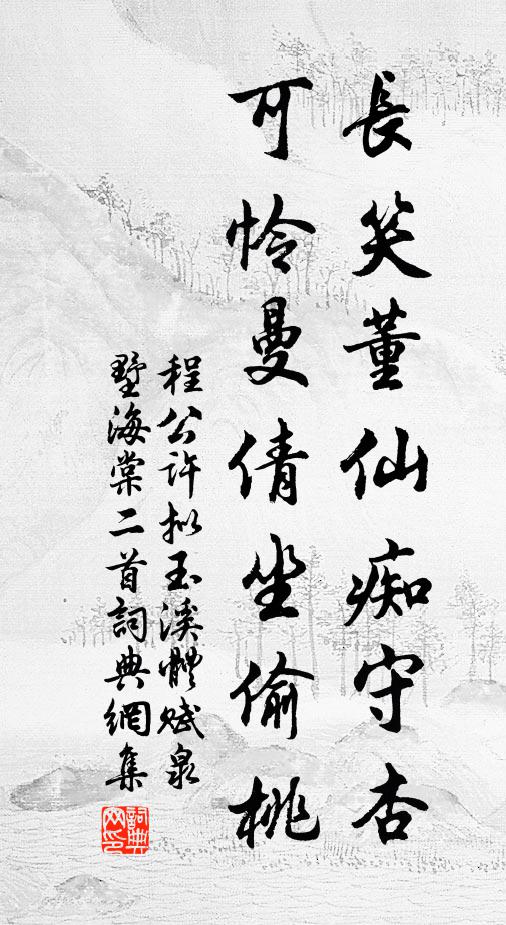 長笑董仙痴守杏
可怜曼倩坐偷桃
程公许拟玉溪體赋泉
墅海棠二首詞典網集
詞典网印